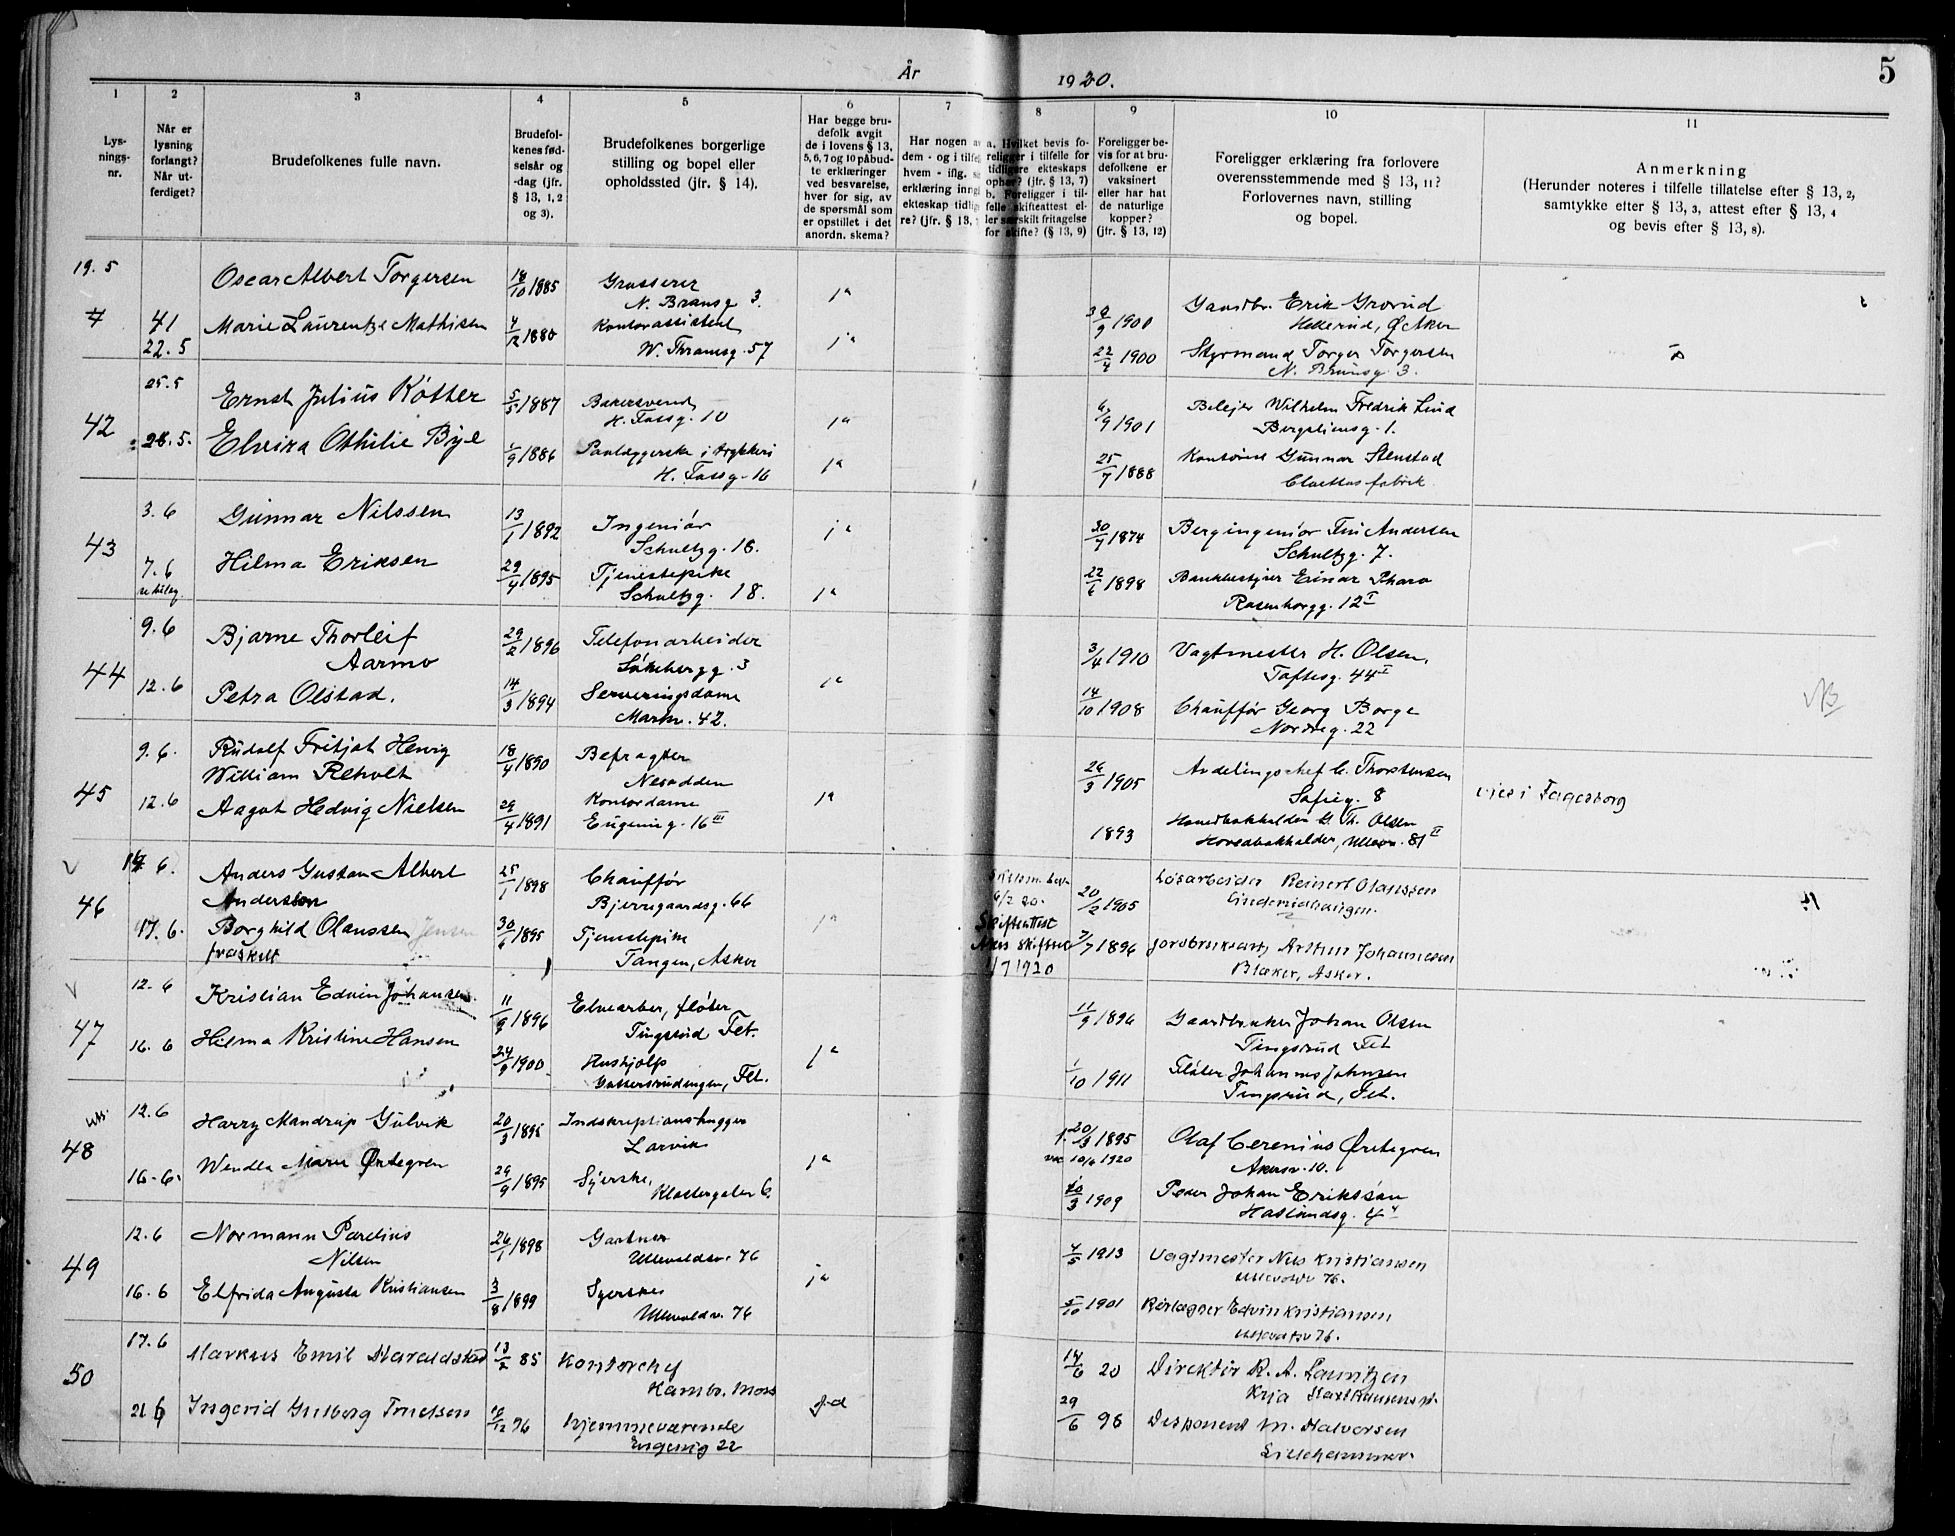 5
År 1920.
1
2
3
4
5
6
7
8
9
10
11
Lys-
nings-
nr.
Når er
lysning
forlangt?
Når ut-
ferdiget?
Brudefolkenes fulle navn.
Brudefol-
kenes fød-
selsår og
-dag (jfr.
§ 13, 1, 2
og 3).
Brudefolkenes borgerlige
stilling og bopel eller
opholdssted (jfr. § 14).
Har begge bru-
defolk avgit
de i lovens § 13,
5, 6, 7 og 10 påbud-
te erklæringer
ved besvarelse,
hver for sig, av
de spørsmål som
er opstillet i det
anordn. skema?
Har nogen av
dem - og i tilfel
hvem - iflg.
erklæring inngå
ekteskap tidlig
re? (jfr. § 13,
a. Hvilket bevis fo-
religger i tilfelle for
tidligere ekteskaps
ophør? (jfr. § 13, 7)
b. Foreligger i til-
felle skifteattest el-
ler særskilt fritagelse
for skifte? (§ 13, 9)
Foreligger be-
vis for at bru-
defolkene er
vaksinert
eller har hat
de naturlige
kopper?
(jfr. § 13, 12)
Foreligger erklæring fra forlovere
overensstemmende med § 13, 11?
Forlovernes navn, stilling
og bopel.
Anmerkning
(Herunder noteres i tilfelle tillatelse efter § 13, 2,
samtykke efter § 13, 3, attest efter § 13, 4
og bevis efter § 13, 8).
19.5 Oscar Albert Torgersen 18/10 1885 Grosserer
N. Bransg 3. ja
Gaardbr. Erik Grorud
Hellerud, Ø. Aker
41 Marie Laurentze Mathisen 4/12 1880 Kontorassistent
22.5 W. Thranesg. 57 ja
22/4 1900 Styrmand Torger Torgersen
N. Brunsg. 3.
42 25.5 Ernst Julius Køtter 5/5 1887 Bakersvend
H. Fossg. 10 ja
1901 Wilhelm Fredrik Lind
Bergsliensg. 1.
28.5. Elvira Othilie Bye 1/9 1886 Paalæggerske i trykkeri
H. Fossg. 16 ja
25/7 1888 Kontorist Gunnar Stenstad
fabrik
43 3.6 Gunnar Nilssen 13/1 1892 Ingeniør
Schultzg. 18. ja
30/7 1874 Bergingeniør Andersen
Schultzg. 7.
7.6 Hilma Eriksen 29/4 1895 Tjenestepike
Schultzg. 18. ja
22/6 1898 Einar
Rosenborgg. 12 I
44 9.6 Bjarne Thorleif
Aarmo 29/2 1896 Telefonarbeider
Søkebergg. 3
3/4 1910 Vagtmester H. Olsen,
Toftesg. 44 II
12.6 Petra Olstad. 14/3 1894 Serveringsdame
Markv. 42. ja
14/10 1908 Chauffør Georg Borge
Nordreg. 22
NB
45 9.6. Rudolf Fritjof Henvig
William Reholt 18/4 1890 Befragter
Nesodden
26/3 1905 Avdelingschef C. Thorstensen
Sofieg. 8
viet i Fagerborg
12.6 Aagot Hedvig Nielsen 29/4 1891 Kontordame
Eugenieg. 16 III ja
1893 Th. Olsen
Hovedbokholder, Ullevv. 81 II
46 6. Anders Gustav Albert
Andersson 25/1 1898 Chauffør
Bjerregaardsg. 66
20/2 1905 Løsarbeider Reinert Olaussen
17.6. Borghild Olaussen Jensen
fraskilt 30/6 1895 Tjenestepike
Tangen, Asker ja
Skifteattest
Akers skifteret
1/7 1920
7/7 1896 Johannessen
Blaker, Asker.
47 12.6 Kristian Edvin Johansen. 11/9 1896 Elvearbei, fløter
Tingsrud Fet.
11/9 1896 Gaardbruker Johan Olsen
Tingsrud Fet
16.6 Hilma Kristine Hansen 24/9 1900 Hushjelp
Fet. ja
1/10 1911 Fløter Johannes Johnsen
Tingsrud, Fet.
48 12.6 Harry Mandrup Gulvik 20/3 1895 Indskriptionshugger
Larvik
20/3 1895
vac 10/6 1920 Olaf Cerenius Ørtegren
Akersv. 10.
16.6. Wendla Marie Ørtegren 29/9 1895 Syerske,
Klostergaten 6. ja
10/3 1909 Peder Johan Eriksson
4 II
49 12.6 Normann Parelius
Nilsen 26/1 1898 Gartner
Ullevoldsv. 76
4/5 1913 Vagtmester Nils Kristiansen
Ullevoldsv 76.
16.6 Elfrida Augusta Kristiansen 3/8 1899 Syerske
Ullevoldsv. 76 ja
5/10 1901 Rørlægger Edvin Kristiansen
Ullevoldsv 76.
50 17.6 Markus Emil Haraldstad 13/2 85 Kontorchef
Kambo. Moss
14/6 20 Direktør R. A. Lauritzen
Krja
21 6 Ingerid Guleborg Truelsen 10/12 96 Hjemmeværende
Eugenieg 22
29/6 98 Disponent M. Halvorsen
Lillehammer.